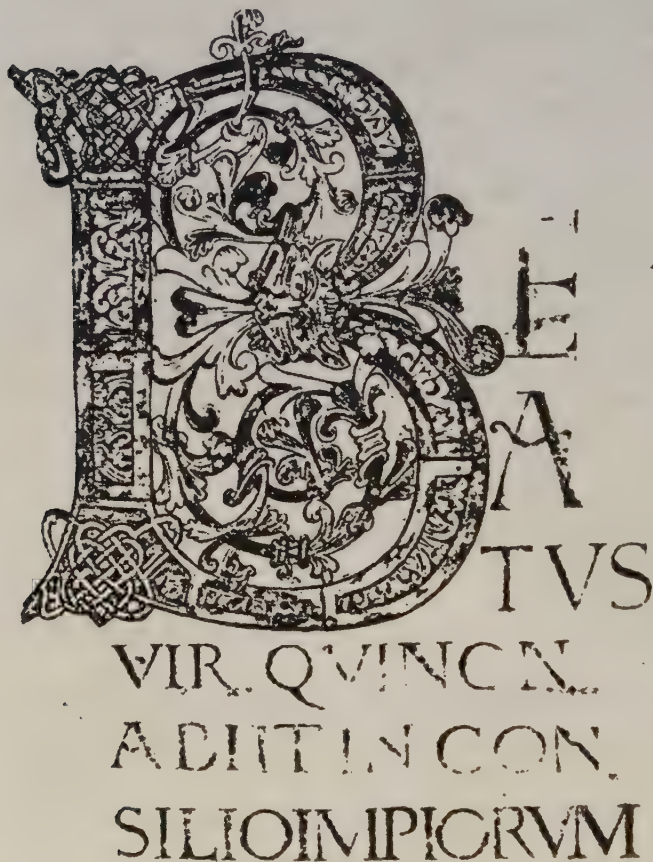 B
E
A
TVS
VIR. QVINON
ABIIT IN CON
SILIOIMPIORVM